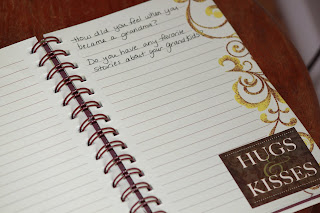 How did you feel when you
became a grandma?
Do you have any favorite
stories about your grandkids?
HUGS
&
KISSES